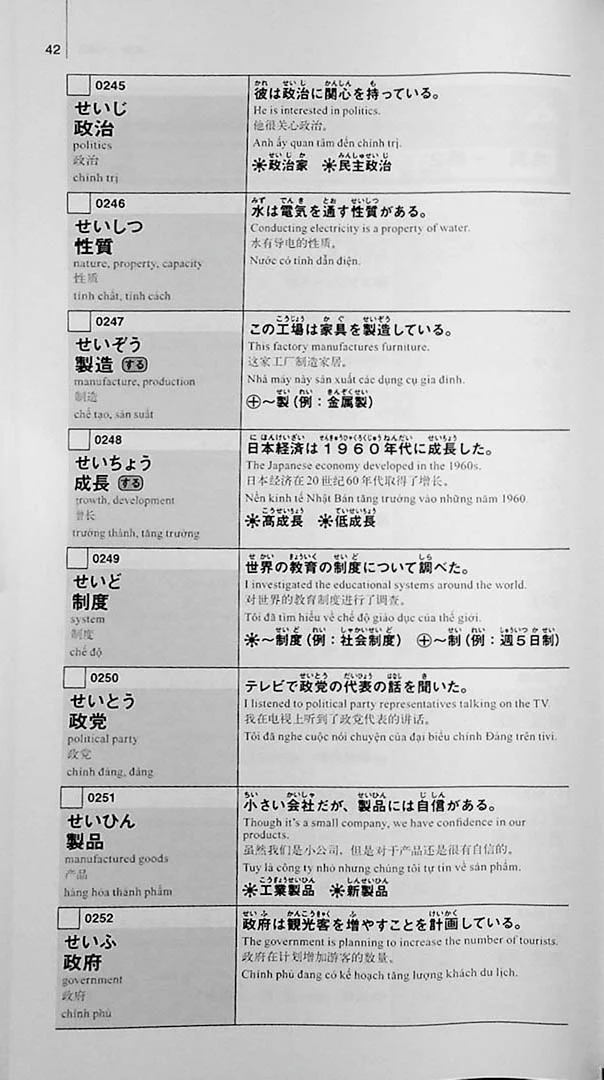 42
0245
せいじ
政治
politics
政治
chính trị
かれ せいじ かんしん も
彼は政治に関心を持っている。
He is interested in politics.
他很关心政治。
Anh ấy quan tâm đến chính trị.
せいじか みんしゅせいじ
✳政治家 ✳民主政治
0246
せいしつ
性質
nature, property, capacity
性质
tính chất, tính cách
みず でんき とお せいしつ
水は電気を通す性質がある。
Conducting electricity is a property of water.
水有导电的性质。
Nước có tính dẫn điện.
0247
せいぞう
製造 する
manufacture, production
制造
chế tạo, sản suất
こうじょう かぐ せいぞう
この工場は家具を製造している。
This factory manufactures furniture.
这家工厂制造家居。
Nhà máy này sản xuất các dụng cụ gia đình.
せい れい きんぞくせい
⊕～製(例：金属製)
0248
せいちょう
成長 する
growth, development
增长
trưởng thành, tăng trưởng
にほんけいざい せんきゅうひゃくろくじゅうねんだい せいちょう
日本経済は１９６０年代に成長した。
The Japanese economy developed in the 1960s.
日本经济在20世纪60年代取得了增长。
Nền kinh tế Nhật Bản tăng trưởng vào những năm 1960.
こうせいちょう ていせいちょう
✳高成長 ✳低成長
0249
せいど
制度
system
制度
chế độ
せかい きょういく せいど しら
世界の教育の制度について調べた。
I investigated the educational systems around the world.
对世界的教育制度进行了调查。
Tôi đã tìm hiểu về chế độ giáo dục của thế giới.
せいど れい しゃかいせいど せい れい しゅういつかせい
✳～制度(例：社会制度) ⊕～制(例：週５日制)
0250
せいとう
政党
political party
政党
chính đảng, đảng
せいとう だいひょう はなし き
テレビで政党の代表の話を聞いた。
I listened to political party representatives talking on the TV.
我在电视上听到了政党代表的讲话。
Tôi đã nghe cuộc nói chuyện của đại biểu chính Đảng trên tivi.
0251
せいひん
製品
manufactured goods
产品
hàng hóa thành phẩm
ちい かいしゃ せいひん じしん
小さい会社だが、製品には自信がある。
Though it's a small company, we have confidence in our
products.
虽然我们是小公司，但是对于产品还是很有自信的。
Tuy là công ty nhỏ nhưng chúng tôi tự tin về sản phẩm.
こうぎょうせいひん しんせいひん
✳工業製品 ✳新製品
0252
せいふ
政府
government
政府
chính phủ
せいふ かんこうきゃく ふ けいかく
政府は観光客を増やすことを計画している。
The government is planning to increase the number of tourists.
政府在计划增加游客的数量。
Chính phủ đang có kế hoạch tăng lượng khách du lịch.